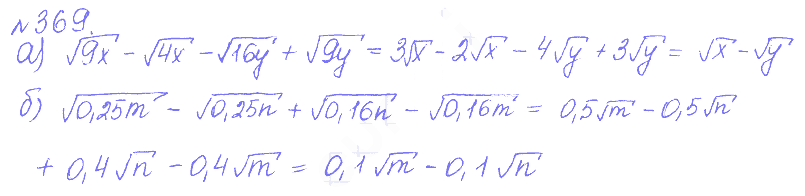 №369.
а) √9x − √4x − √16y + √9y = 3√x − 2√x − 4√y + 3√y = √x − √y
б) √0,25m − √0,25n + √0,16n − √0,16m = 0,5√m − 0,5√n
+ 0,4√n − 0,4√m = 0,1√m − 0,1√n